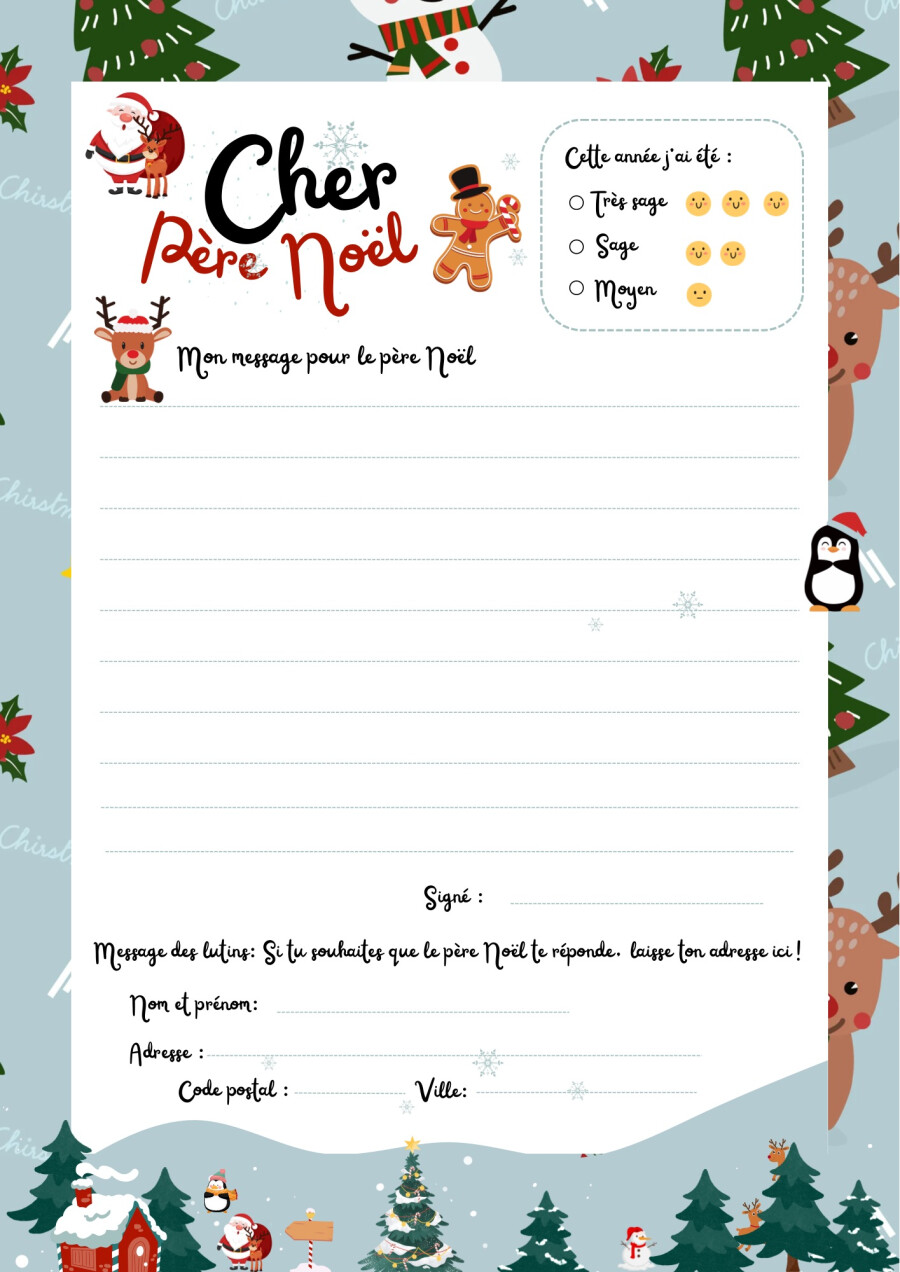 Cher
Père Noël
Cette année j'ai été :
Très sage
Sage
Moyen
Mon message pour le père Noël
Signé :
Message des lutins: Si tu souhaites que le père Noël te réponde. laisse ton adresse ici !
Nom et prénom:
Adresse :
Code postal :
Ville:
Chirstm
Chirstm